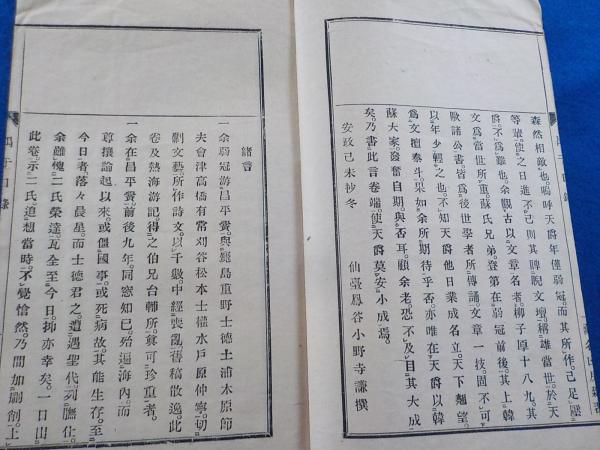 森然相敵也。嗚呼天爵年僅弱冠。而其所作。已足壓
等輩。使之日進不已。則其睥睨文壇。稱雄當世。於天
爵不難也。余觀古以文章名者。柳子厚十八九。其
文爲當世所重。蘇氏兄弟。登第在弱冠前後。其上韓
歐諸公書。皆爲後世學者所傳誦。文章一技。固不可
以年少輕之也。不知天爵他日業成名立。天下翹望。
爲文壇泰斗。果如余所期待乎否。亦唯在天爵以韓
蘇大家。發奮自期。與否耳。顧余老。恐不及目其大成
矣。乃書此言卷端。使天爵莫安小成焉。
安政己未抄冬
仙臺鳳谷小野寺謙撰
緒言
一余弱冠游昌平黌。與鹿島重野士德土浦木原師
夫會津高橋有常刈谷松本士權水戶原仲寧。切
劘文藝。所作詩文。以千數。中經喪亂。舊稿散逸。此
卷及熱海游記。得之伯兄台輔所。眞可珍重者。
一余在昌平黌。前後九年。同窓知己殆遍海內。而
尊攘論起以來。或僵國事。或死病故。其能生存。至
今日者。落々晨星。而士德君之。遭遇聖代。列膴仕。
余雖愧二氏榮達。瓦全至今日。抑亦幸矣。一日出
此卷。示二氏。追想當時。不覺愴然。乃間加刪削。上